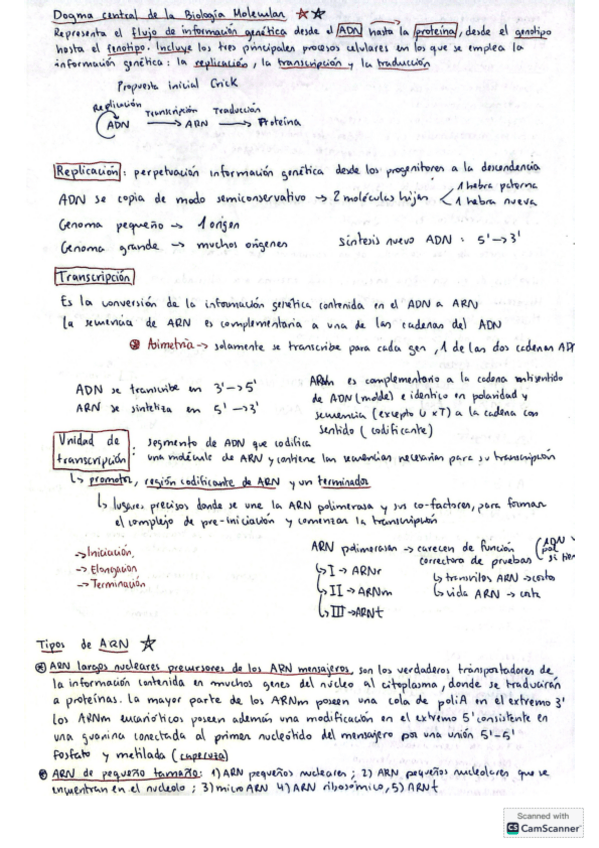 Dogma central de la Biología Molecular
Representa el flujo de información genética desde el ADN hasta la proteína, desde el genotipo
hasta el fenotipo. Incluye los tres principales procesos celulares en los que se emplea la
información genética: la replicación, la transcripción y la traducción
Propuesta inicial Crick
Replicación
Transcripción Traducción
ADN → ARN → Proteína
Replicación: perpetuación información genética desde los progenitores a la descendencia
ADN se copia de modo semiconservativo → 2 moléculas hijas < 1 hebra paterna
1 hebra nueva
Genoma pequeño → 1 origen
Genoma grande → muchos orígenes síntesis nuevo ADN : 5' → 3'
Transcripción
Es la conversión de la información genética contenida en el ADN a ARN
la secuencia de ARN es complementaria a una de las cadenas del ADN
Asimetría → solamente se transcribe para cada gen, 1 de las dos cadenas
ADN se transcribe en 3' → 5'
ARN se sintetiza en 5' → 3'
ARNm es complementario a la cadena antisentido
de ADN (molde) e idéntico en polaridad y
secuencia (excepto U x T) a la cadena con
sentido (codificante)
Unidad de transcripción : segmento de ADN que codifica
una molécula de ARN y contiene las secuencias necesarias para su transcripción
↳ promotor, región codificante de ARN y un terminador
↳ lugares precisos donde se une la ARN polimerasa y sus co-factores, para formar
el complejo de pre-iniciación y comenzar la transcripción
→ Iniciación,
→ Elongación
→ Terminación
ARN polimerasas → carecen de función
correctora de pruebas (ADN
pol
si
↳ I → ARNr
↳ II → ARNm
↳ III → ARNt
↳ tránsitos ARN → corto
↳ vida ARN → corta
Tipos de ARN
ARN largos nucleares precursores de los ARN mensajeros, son los verdaderos transportadores de
la información contenida en muchos genes del núcleo al citoplasma, donde se traducirán
a proteínas. la mayor parte de los ARNm poseen una cola de poliA en el extremo 3'
los ARNm eucarióticos poseen además una modificación en el extremo 5' consistente en
una guanina conectada al primer nucleótido del mensajero por una unión 5'-5'
fosfato y metilada (caperuza)
ARN de pequeño tamaño: 1) ARN pequeños nucleares ; 2) ARN pequeños nucleolares que se
encuentran en el nucleolo ; 3) micro ARN 4) ARN ribosómico, 5) ARNt
Scanned with
CS CamScanner